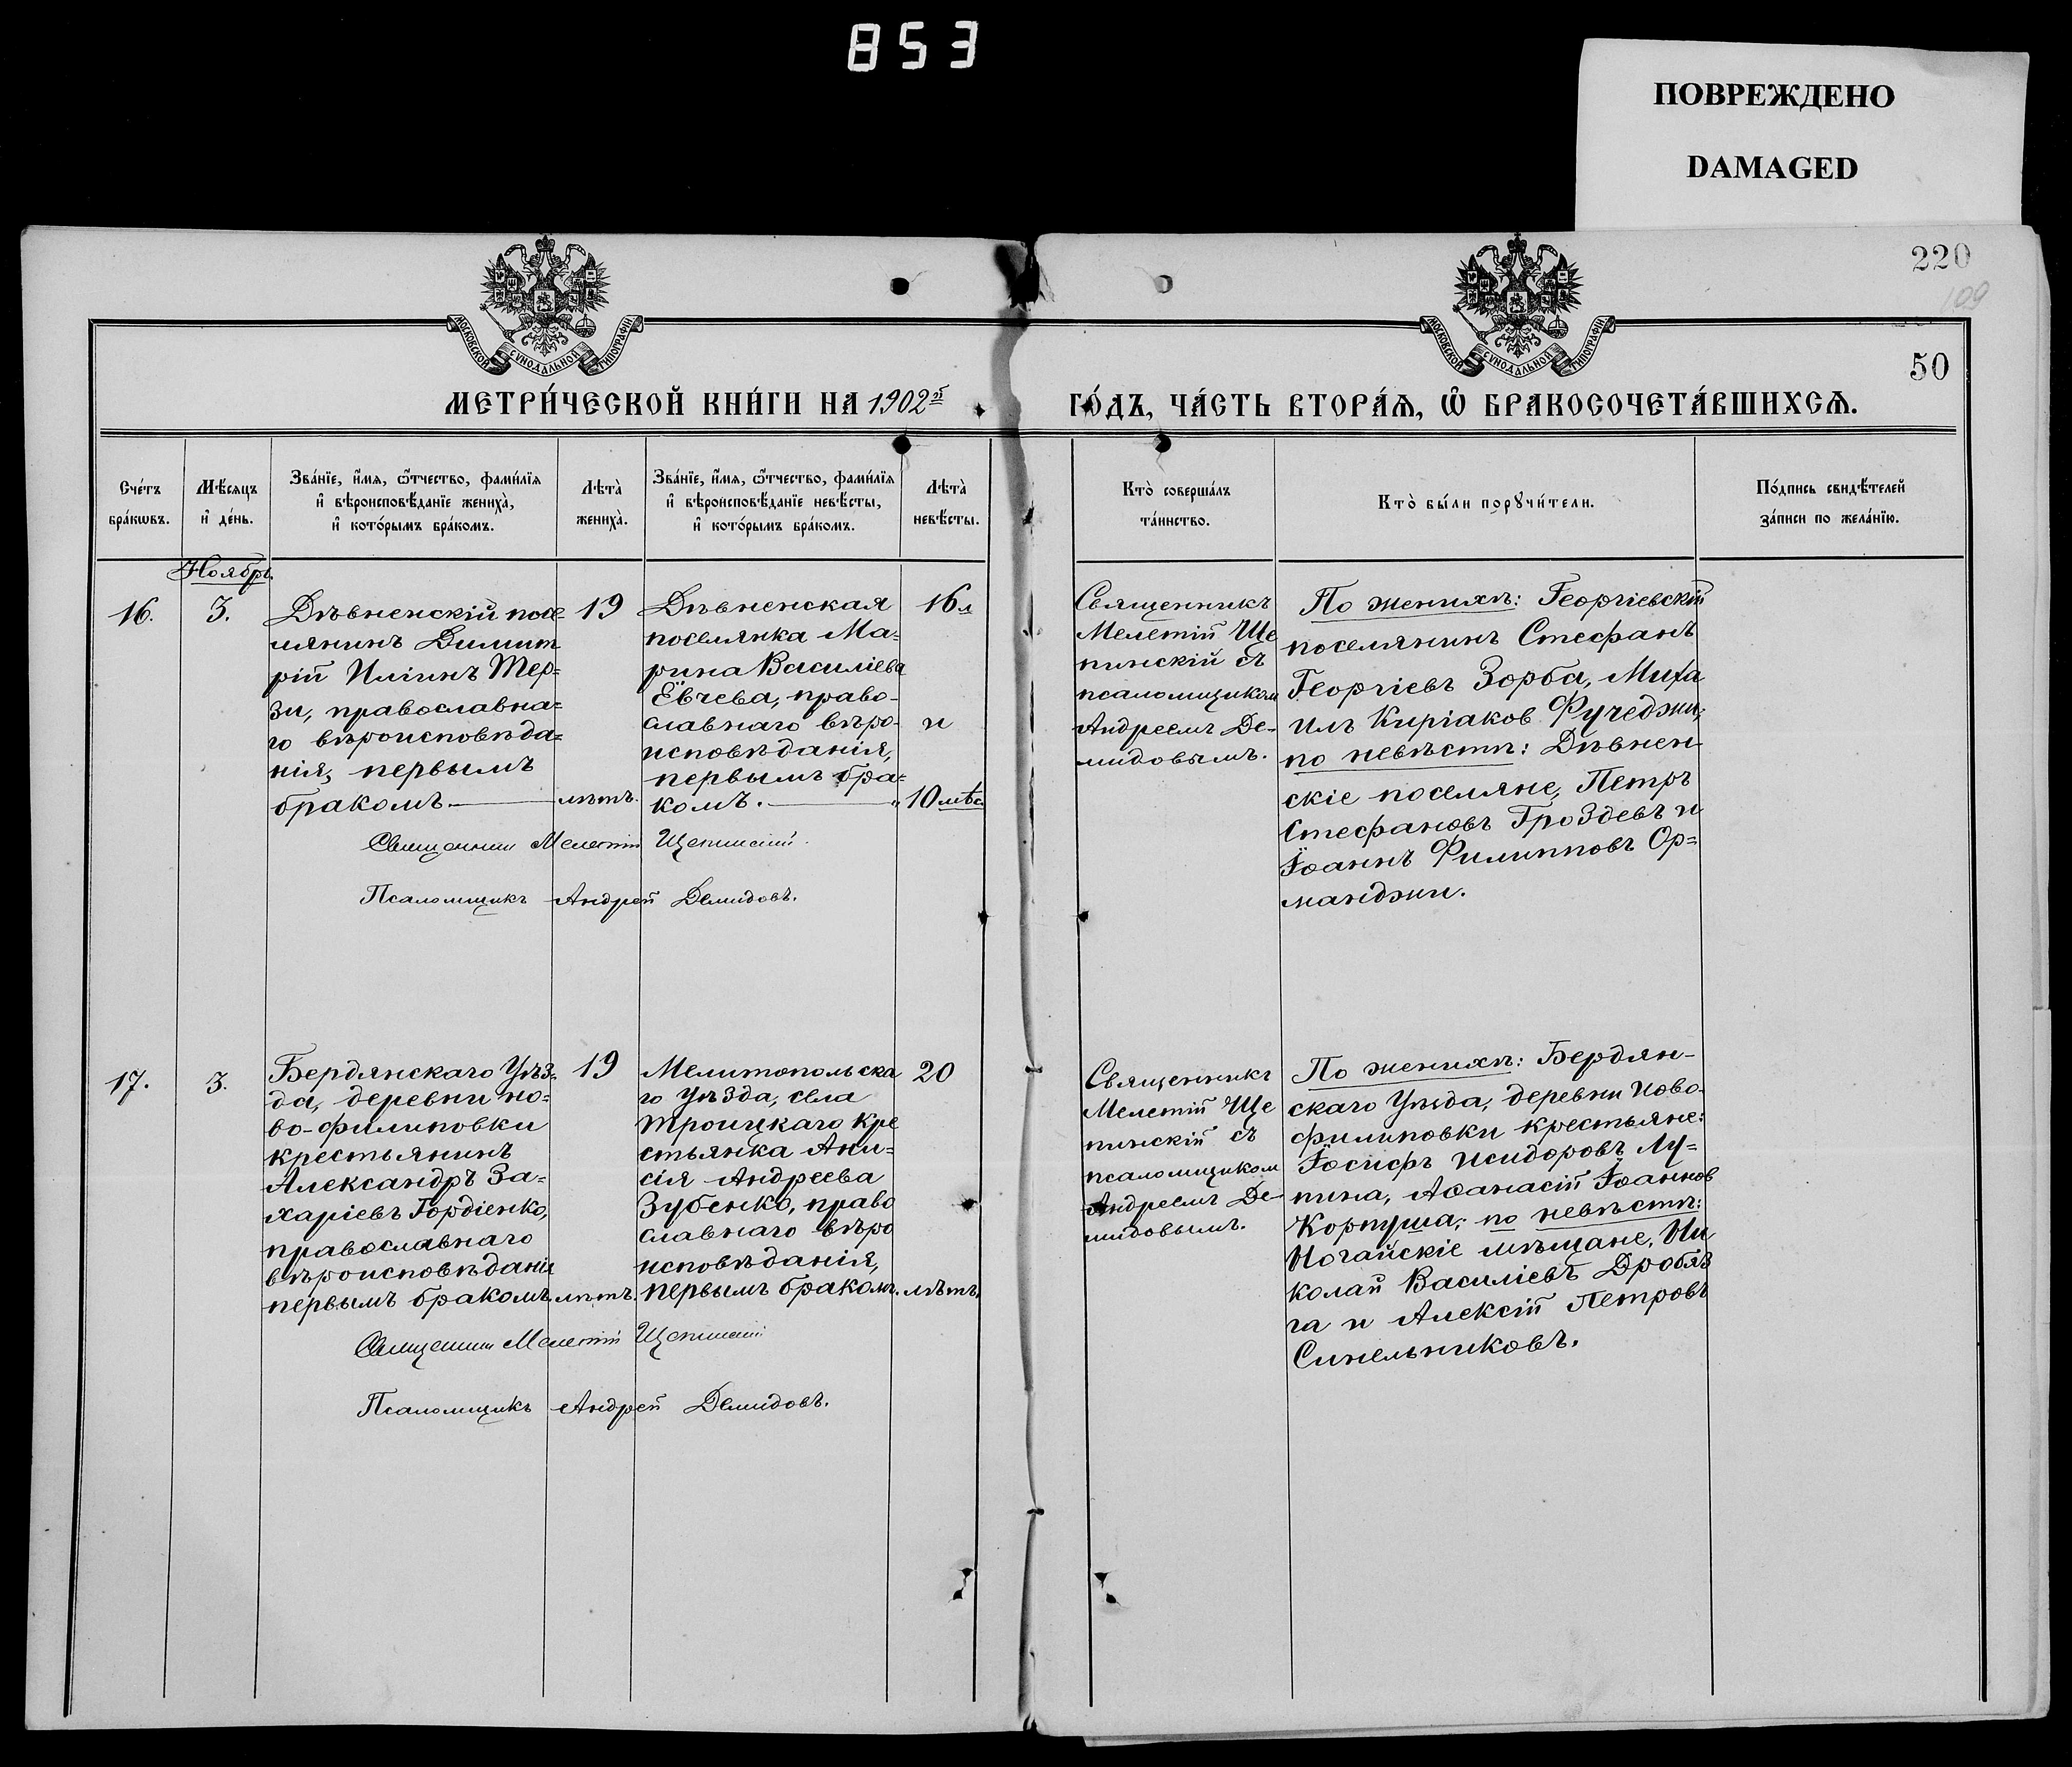 853
ПОВРЕЖДЕНО
DAMAGED
220
109
50
МОСКОВСКОЙ СУНОДАЛЬНОЙ ТИПОГРАФІИ
МОСКОВСКОЙ СУНОДАЛЬНОЙ ТИПОГРАФІИ
МЕТРИ́ЧЕСКОЙ КНИ́ГИ НА 1902й
ГО́ДЪ, ЧА́СТЬ ВТОРА́Ѧ, Ѡ҆ БРАКОСОЧЕТА́ВШИХСѦ.
Сче́тъ
бра́кѡвъ.
Мѣ́сѧцъ
и҆ де́нь.
Зва́нїе, и҆́мѧ, ѻ҆́тчество, фами́лїѧ
и҆ вѣроисповѣ́данїе жениха̀,
и҆ кото́рымъ бра́комъ.
Лѣта̀
жениха̀.
Зва́нїе, и҆́мѧ, ѻ҆́тчество, фами́лїѧ
и҆ вѣроисповѣ́данїе невѣ́сты,
и҆ кото́рымъ бра́комъ.
Лѣта̀
невѣ́сты.
Кто̀ соверша́лъ
та́инство.
Кто̀ бы́ли порꙋчи́тели.
По́дпись свидѣ́телей
за́писи по жела́нїю.
Ноябрь.
16.
3.
Дѣвненскій посе-
лянинъ Димит
рій Иліинъ Тер-
зи, православна=
го вѣроисповѣда=
нія, первымъ
бракомъ.
19
лѣтъ.
Дѣвненская
поселянка Ма-
рина Василіева
Евчева, право-
славнаго вѣро-
исповѣданія,
первымъ бра=
комъ.
16 л
и
10 мѣс
Священникъ
Мелетій Ще
пинскій съ
псаломщиком
Андреемъ Де-
мидовымъ.
По женихѣ: Георгіевскій
поселянинъ Стефанъ
Георгіевъ Зорба, Миха
илъ Киріаков Фучеджи;
по невѣстѣ: Дѣвнен
скіе поселяне, Петръ
Стефановъ Гроздевъ и
Іоаннъ Филипповъ Ор=
манджи.
Священник Мелетій Щепинскій
Псаломщикъ Андрей Демидовъ.
17.
3.
Бердянскаго Уѣз-
да, деревни но-
во-филиповки
крестьянинъ
Александръ За-
харіевъ Гордіенко,
православнаго
вѣроисповѣданія
первымъ бракомъ.
19
лѣтъ.
Мелитопольска
го Уѣзда, села
Троицкаго кре
стьянка Ани-
сія Андреева
Зубенко, право
славнаго вѣро
исповѣданія,
первымъ бракомъ.
20
лѣтъ.
Священникъ
Мелетій Ще
пинскій съ
псаломщиком
Андреемъ Де
мидовымъ.
По женихѣ: Бердян-
скаго Уѣзда, деревни Ново-
филиповки крестьяне:
Іосифъ Исидоровъ Лу=
пина, Аѳанасій Іоаннов
Корпуша; по невѣстѣ:
Ногайскіе мѣщане, Ни
колай Василіевъ Дробяз
га и Алексій Петровъ
Синельниковъ.
Священник Мелетій Щепинскій
Псаломщикъ Андрей Демидовъ.